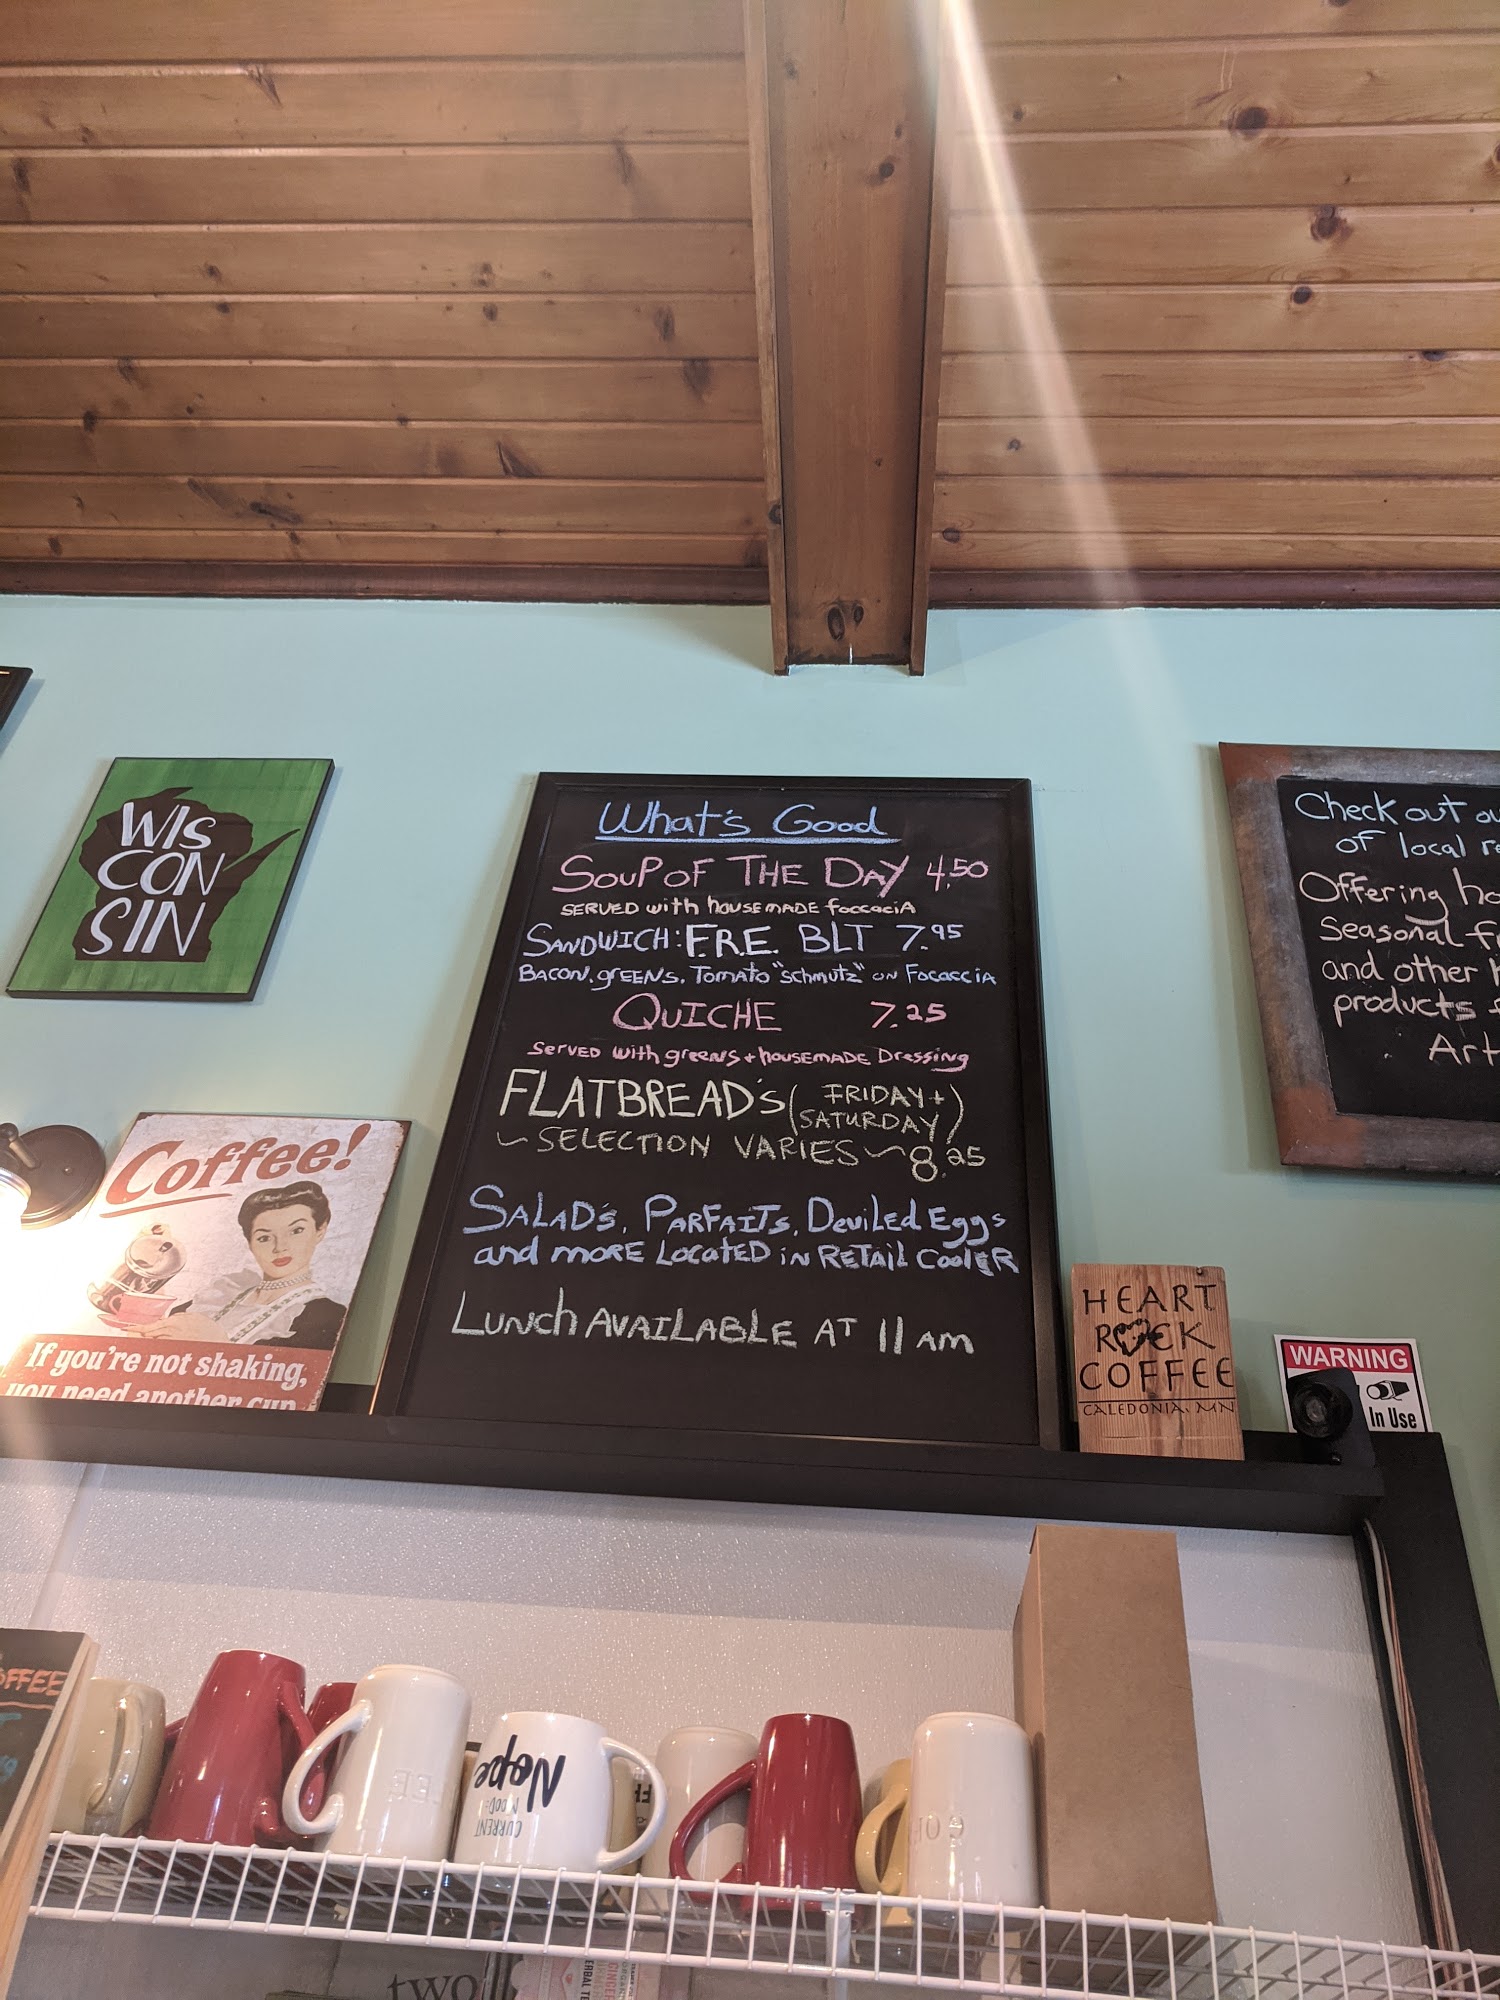 WIS
CON
SIN
What's Good
SOUP OF THE DAY 4.50
SERVED with housemade foccacia
SANDWICH: F.R.E. BLT 7.95
BACON, greens, Tomato "schmutz" on Focaccia
QUICHE 7.25
Served with greens + housemade Dressing
FLATBREAD's (FRIDAY +
SATURDAY)
~ SELECTION VARIES ~ 8.25
SALAD's, PARFAITs, Deviled Eggs
and more Located in Retail Cooler
Lunch Available at 11 am
Check out
of local
Offering
Seasonal
and other
products
Coffee!
If you're not shaking,
you need another cup
HEART
ROCK
COFFEE
CALEDONIA, MN
WARNING
In Use
OFFEE
Nope
CURRENT
MOOD:
two